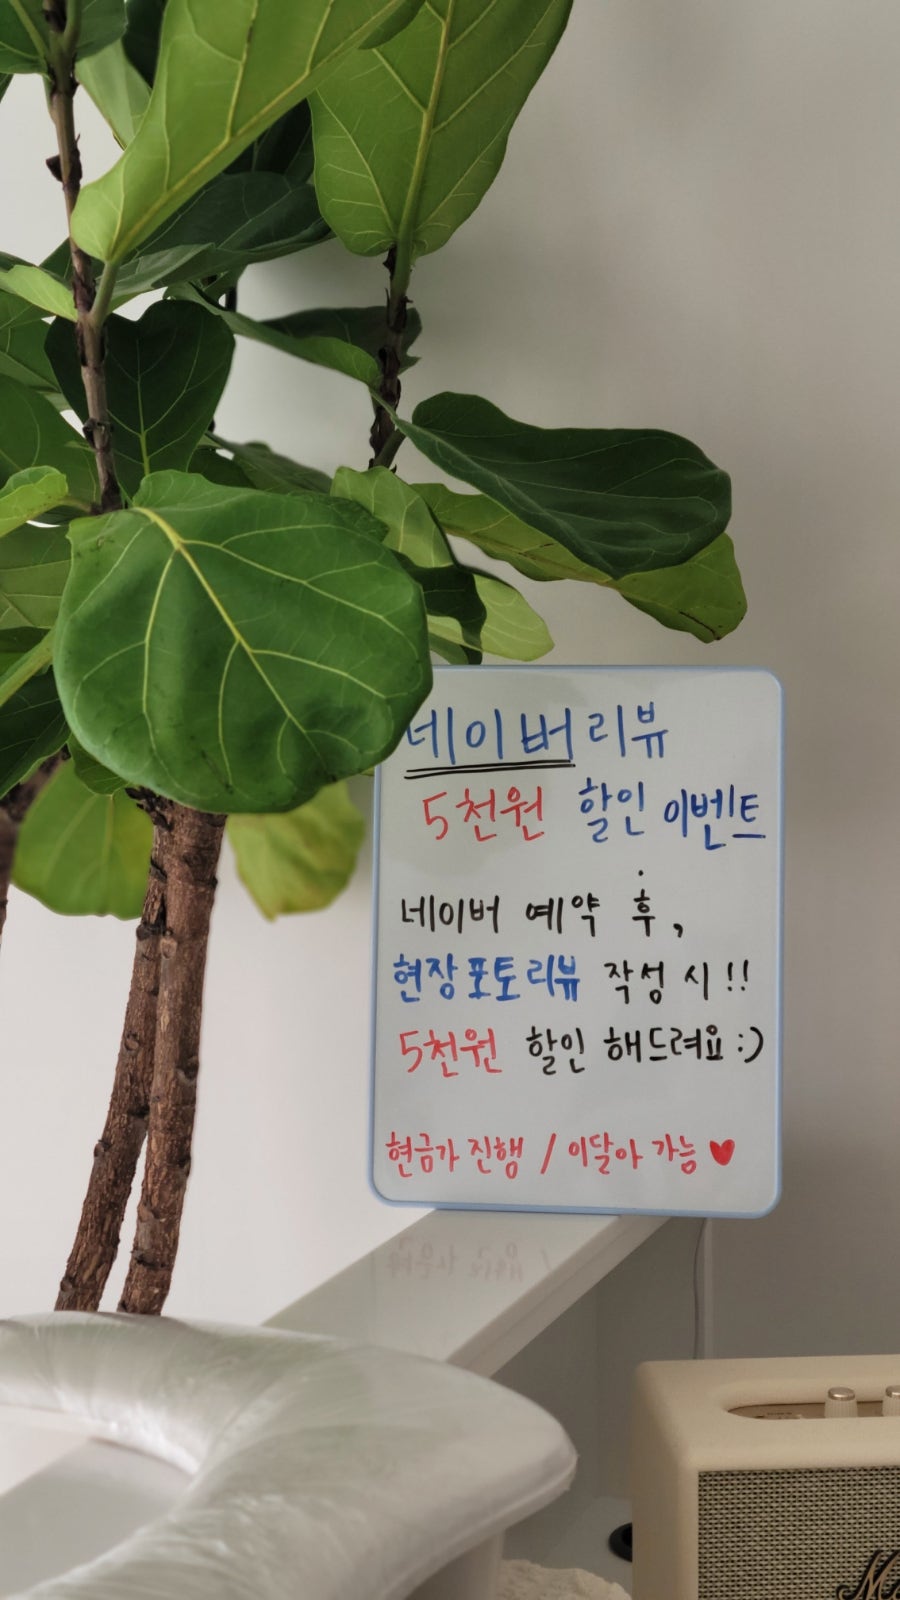 네이버리뷰
5천원 할인 이벤트
네이버 예약 후,
현장포토리뷰 작성 시!!
5천원 할인 해드려요 :)
현금가 진행 / 이달아 가능 ♥